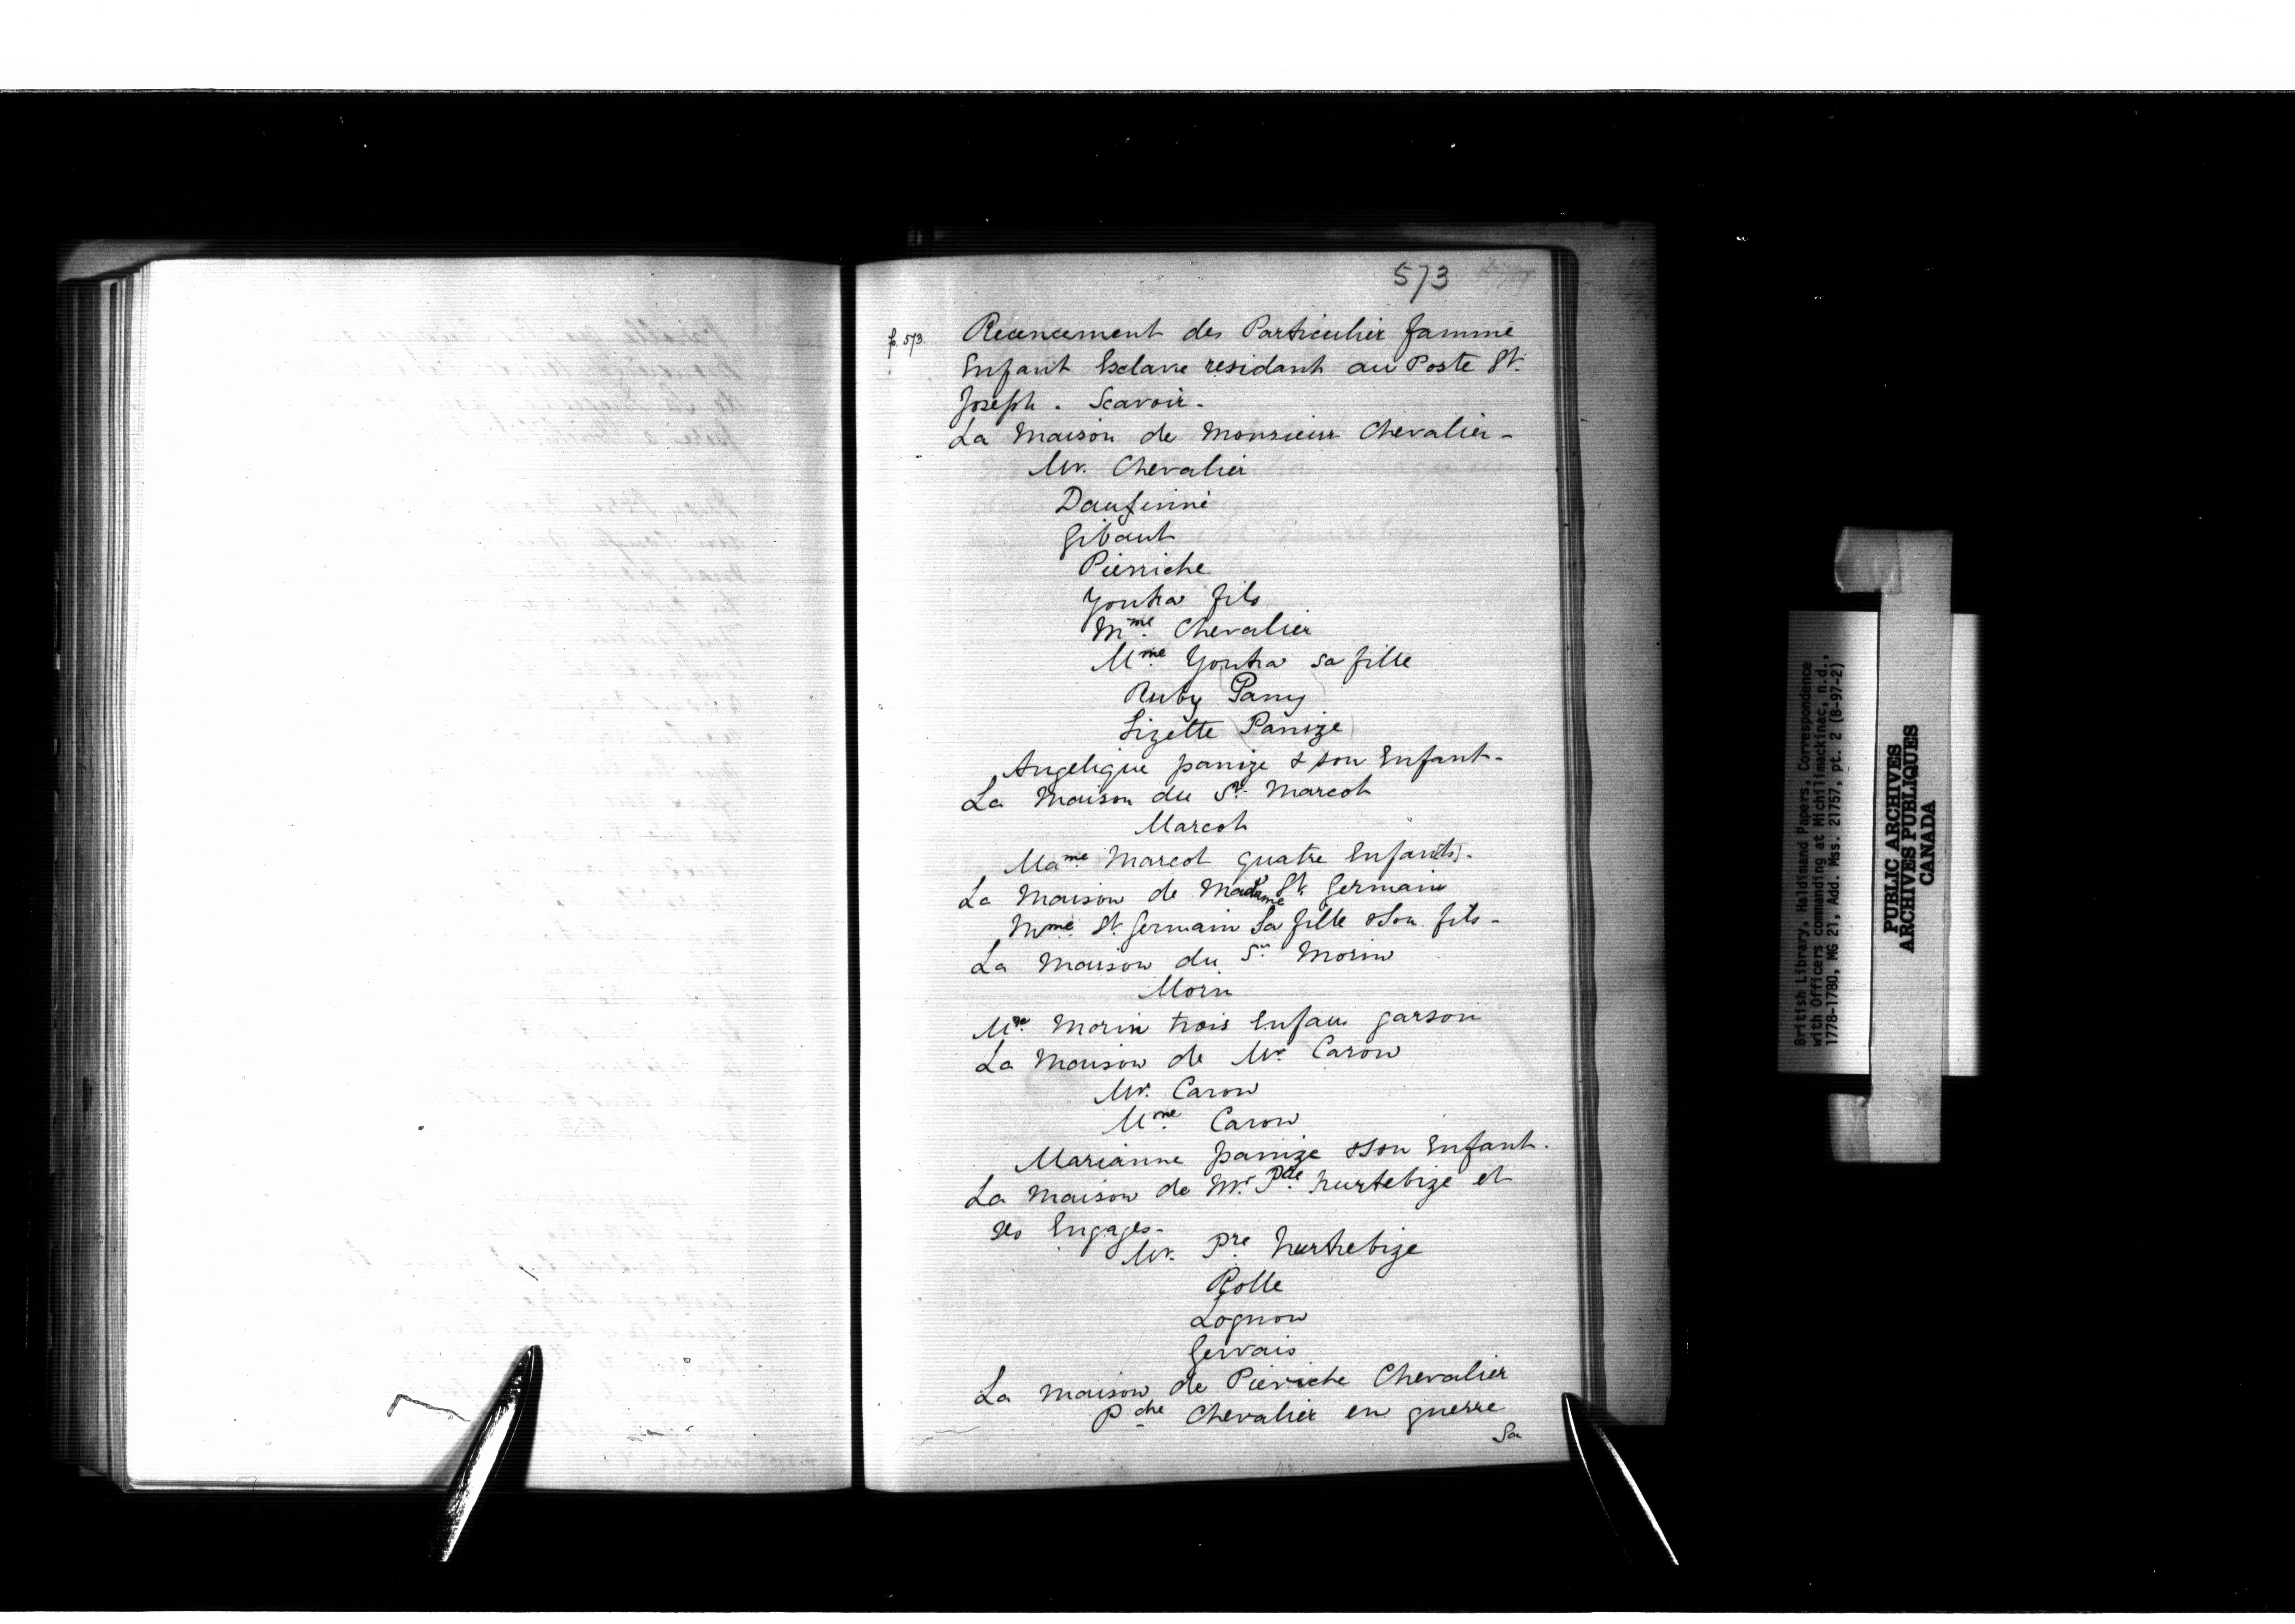 573
fo. 573.
Recencement des Particulier famme
Enfant Esclave residant au Poste St.
Joseph. Scavoir.
La Maison de Monsieur Chevalier -
Mr. Chevalier
Daufinné
Gibaut
Pierriche
Youtra fils
Mme. Chevalier
Mme. Youtra sa fille
Ruby Pany
Lizette Panize
Angelique panize & son Enfant -
La Maison du Sr. Marcot
Marcot
Mame. Marcot quatre Enfant[s].
La Maison de Madame St. Germain
Mme. St. Germain Sa fille & Son fils -
La Maison du Sr. Morin
Morin
Mme. Morin trois Enfans garson
La Maison de Mr. Caron
Mr. Caron
Mme. Caron
Marianne panize & Son Enfant.
La Maison de Mr. Pre. hurtebize et
ses Engages -
Mr. Pre. hurtebize
Rolle
Lognon
Gervais
La Maison de Pieriche Chevalier
Pche Chevalier en guerre
Sa
British Library, Haldimand Papers, Correspondence
with Officers commanding at Michilimackinac, n.d.,
1778-1780, MG 21, Add. Mss. 21757, pt. 2 (B-97-2)
PUBLIC ARCHIVES
ARCHIVES PUBLIQUES
CANADA